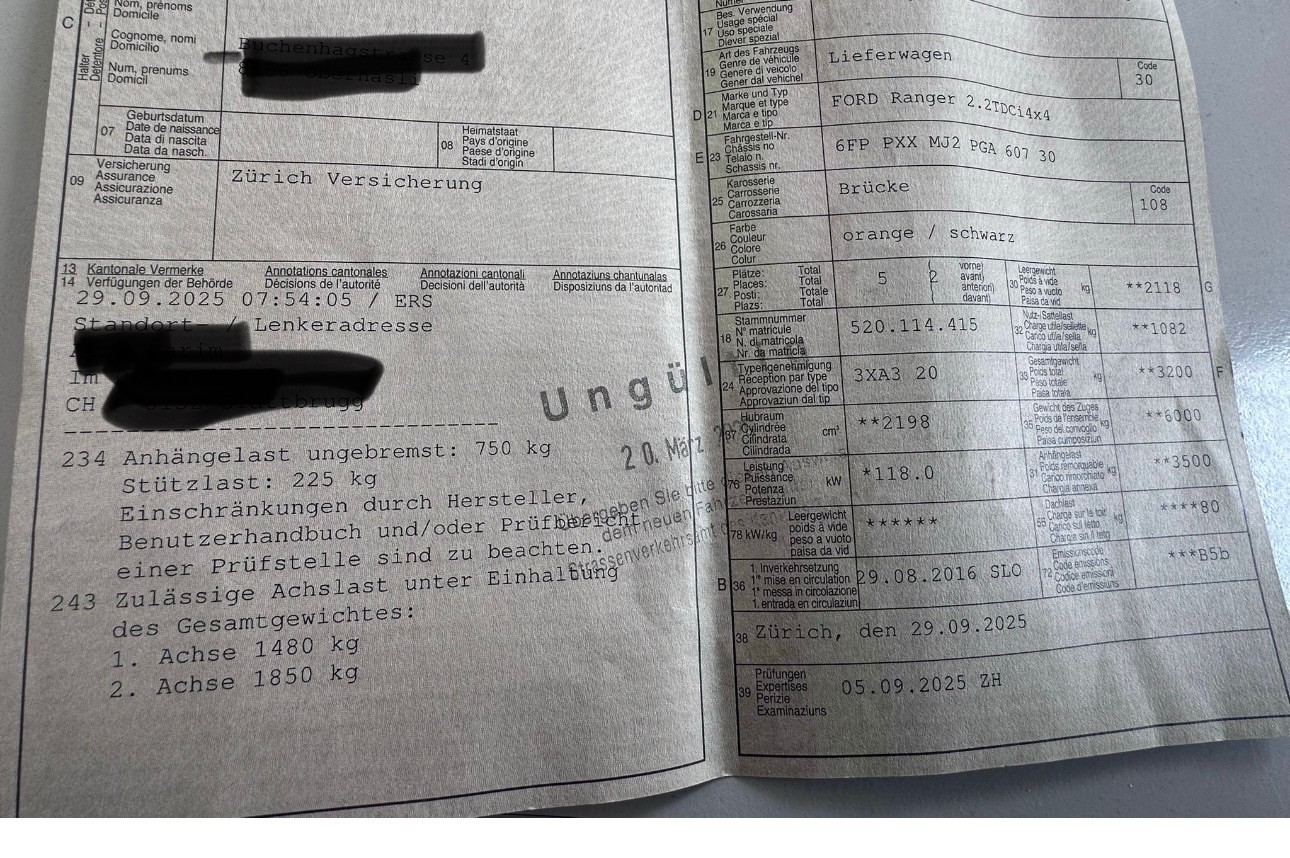 C
Nom, prénoms
Domicile
Cognome, nomi
Domicilio
Num, prenums
Domicil
Halter
07
Geburtsdatum
Date de naissance
Data di nascita
Data da nasch.
08
Heimatstaat
Pays d'origine
Paese d'origine
Stadi d'origin
09
Versicherung
Assurance
Assicurazione
Assicuranza
Zürich Versicherung
13 Kantonale Vermerke Annotations cantonales Annotazioni cantonali Annotaziuns chantunalas
14 Verfügungen der Behörde Décisions de l'autorité Decisioni dell'autorità Disposiziuns da l'autoritad
29.09.2025 07:54:05 / ERS
Standort- / Lenkeradresse
Im
CH
234 Anhängelast ungebremst: 750 kg
Stützlast: 225 kg
Einschränkungen durch Hersteller,
Benutzerhandbuch und/oder Prüfbericht
einer Prüfstelle sind zu beachten.
243 Zulässige Achslast unter Einhaltung
des Gesamtgewichtes:
1. Achse 1480 kg
2. Achse 1850 kg
20. März
übergeben Sie bitte
dem neuen
Strassenverkehrsamt
17
Bes. Verwendung
Usage spécial
Uso speciale
Diever spezial
19
Art des Fahrzeugs
Genre de véhicule
Genere di veicolo
Gener dal vehichel
Lieferwagen
Code
30
D 21
Marke und Typ
Marque et type
Marca e tipo
Marca e tip
FORD Ranger 2.2TDCi4x4
E 23
Fahrgestell-Nr.
Châssis no
Telaio n.
Schassis nr.
6FP PXX MJ2 PGA 607 30
25
Karosserie
Carrosserie
Carrozzeria
Carossaria
Brücke
Code
108
26
Farbe
Couleur
Colore
Colur
orange / schwarz
27
Plätze: Total
Places: Total
Posti: Totale
Plazs: Total
5
2
vorne
avant
anteriori
davant
30
Leergewicht
Poids à vide
Peso a vuoto
Paisa da vid
kg
**2118
G
18
Stammnummer
N° matricule
N. di matricola
Nr. da matricla
520.114.415
32
Nutz-/Sattellast
Charge utile/sellette
Carico utile/sella
Chargia utila/sella
kg
**1082
24
Typengenehmigung
Réception par type
Approvazione del tipo
Approvaziun dal tip
3XA3 20
33
Gesamtgewicht
Poids total
Peso totale
Paisa totala
kg
**3200
F
37
Hubraum
Cylindrée
Cilindrata
Cilindrada
cm³
**2198
35
Gewicht des Zuges
Poids de l'ensemble
Peso del convoglio
Paisa cumposiziun
kg
**6000
76
Leistung
Puissance
Potenza
Prestaziun
kW
*118.0
31
Anhängelast
Poids remorquable
Carico rimorchiato
Chargia annexa
kg
**3500
78 kW/kg
Leergewicht
poids à vide
peso a vuoto
paisa da vid
******
55
Dachlast
Charge sur le toit
Carico sul tetto
Chargia sin il tetg
kg
****80
B 36
1. Inverkehrsetzung
1re mise en circulation
1a messa in circolazione
1. entrada en circulaziun
29.08.2016 SLO
72
Emissionscode
Code émissions
Codice emissioni
Code d'emissiuns
***B5b
38 Zürich, den 29.09.2025
39
Prüfungen
Expertises
Perizie
Examinaziuns
05.09.2025 ZH